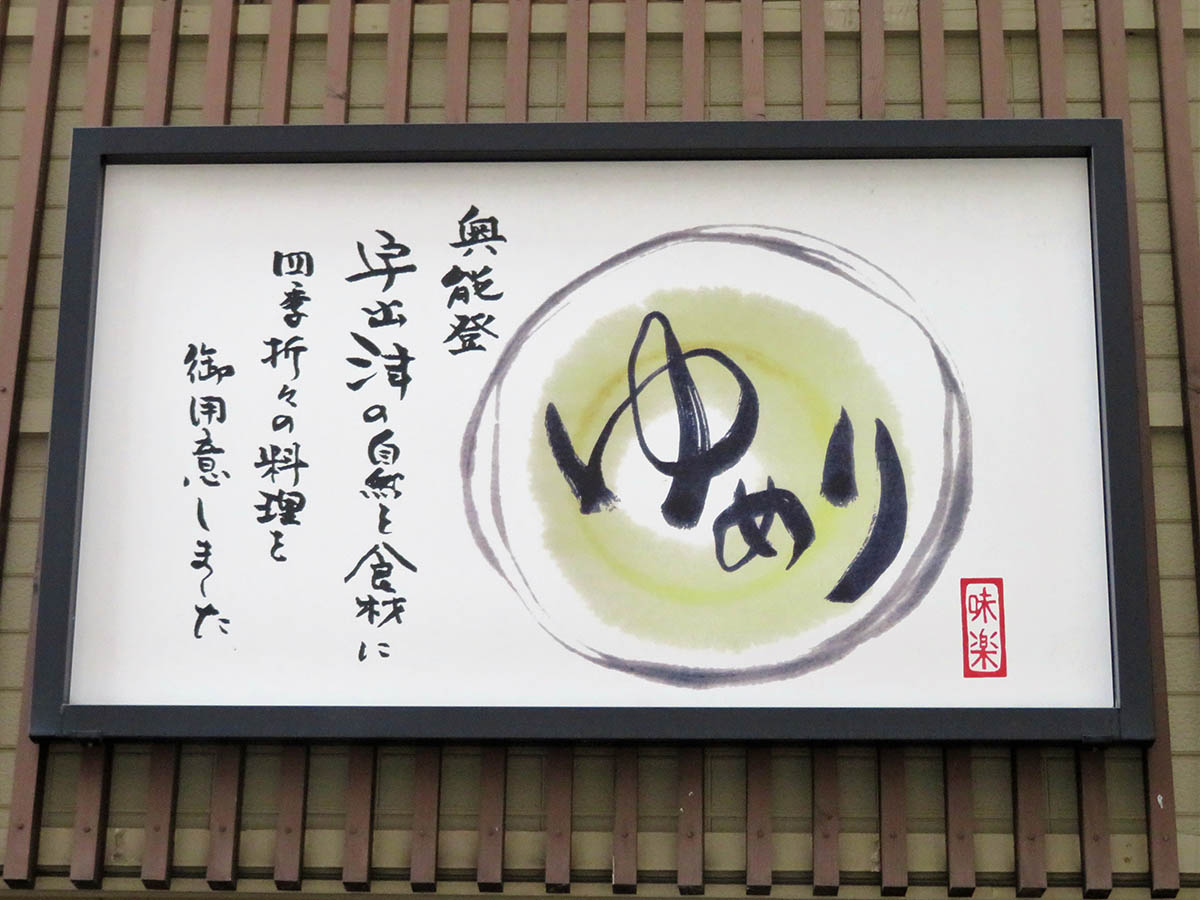 ゆめり
味楽
奥能登
宇出津の自然と食材に
四季折々の料理を
御用意しました